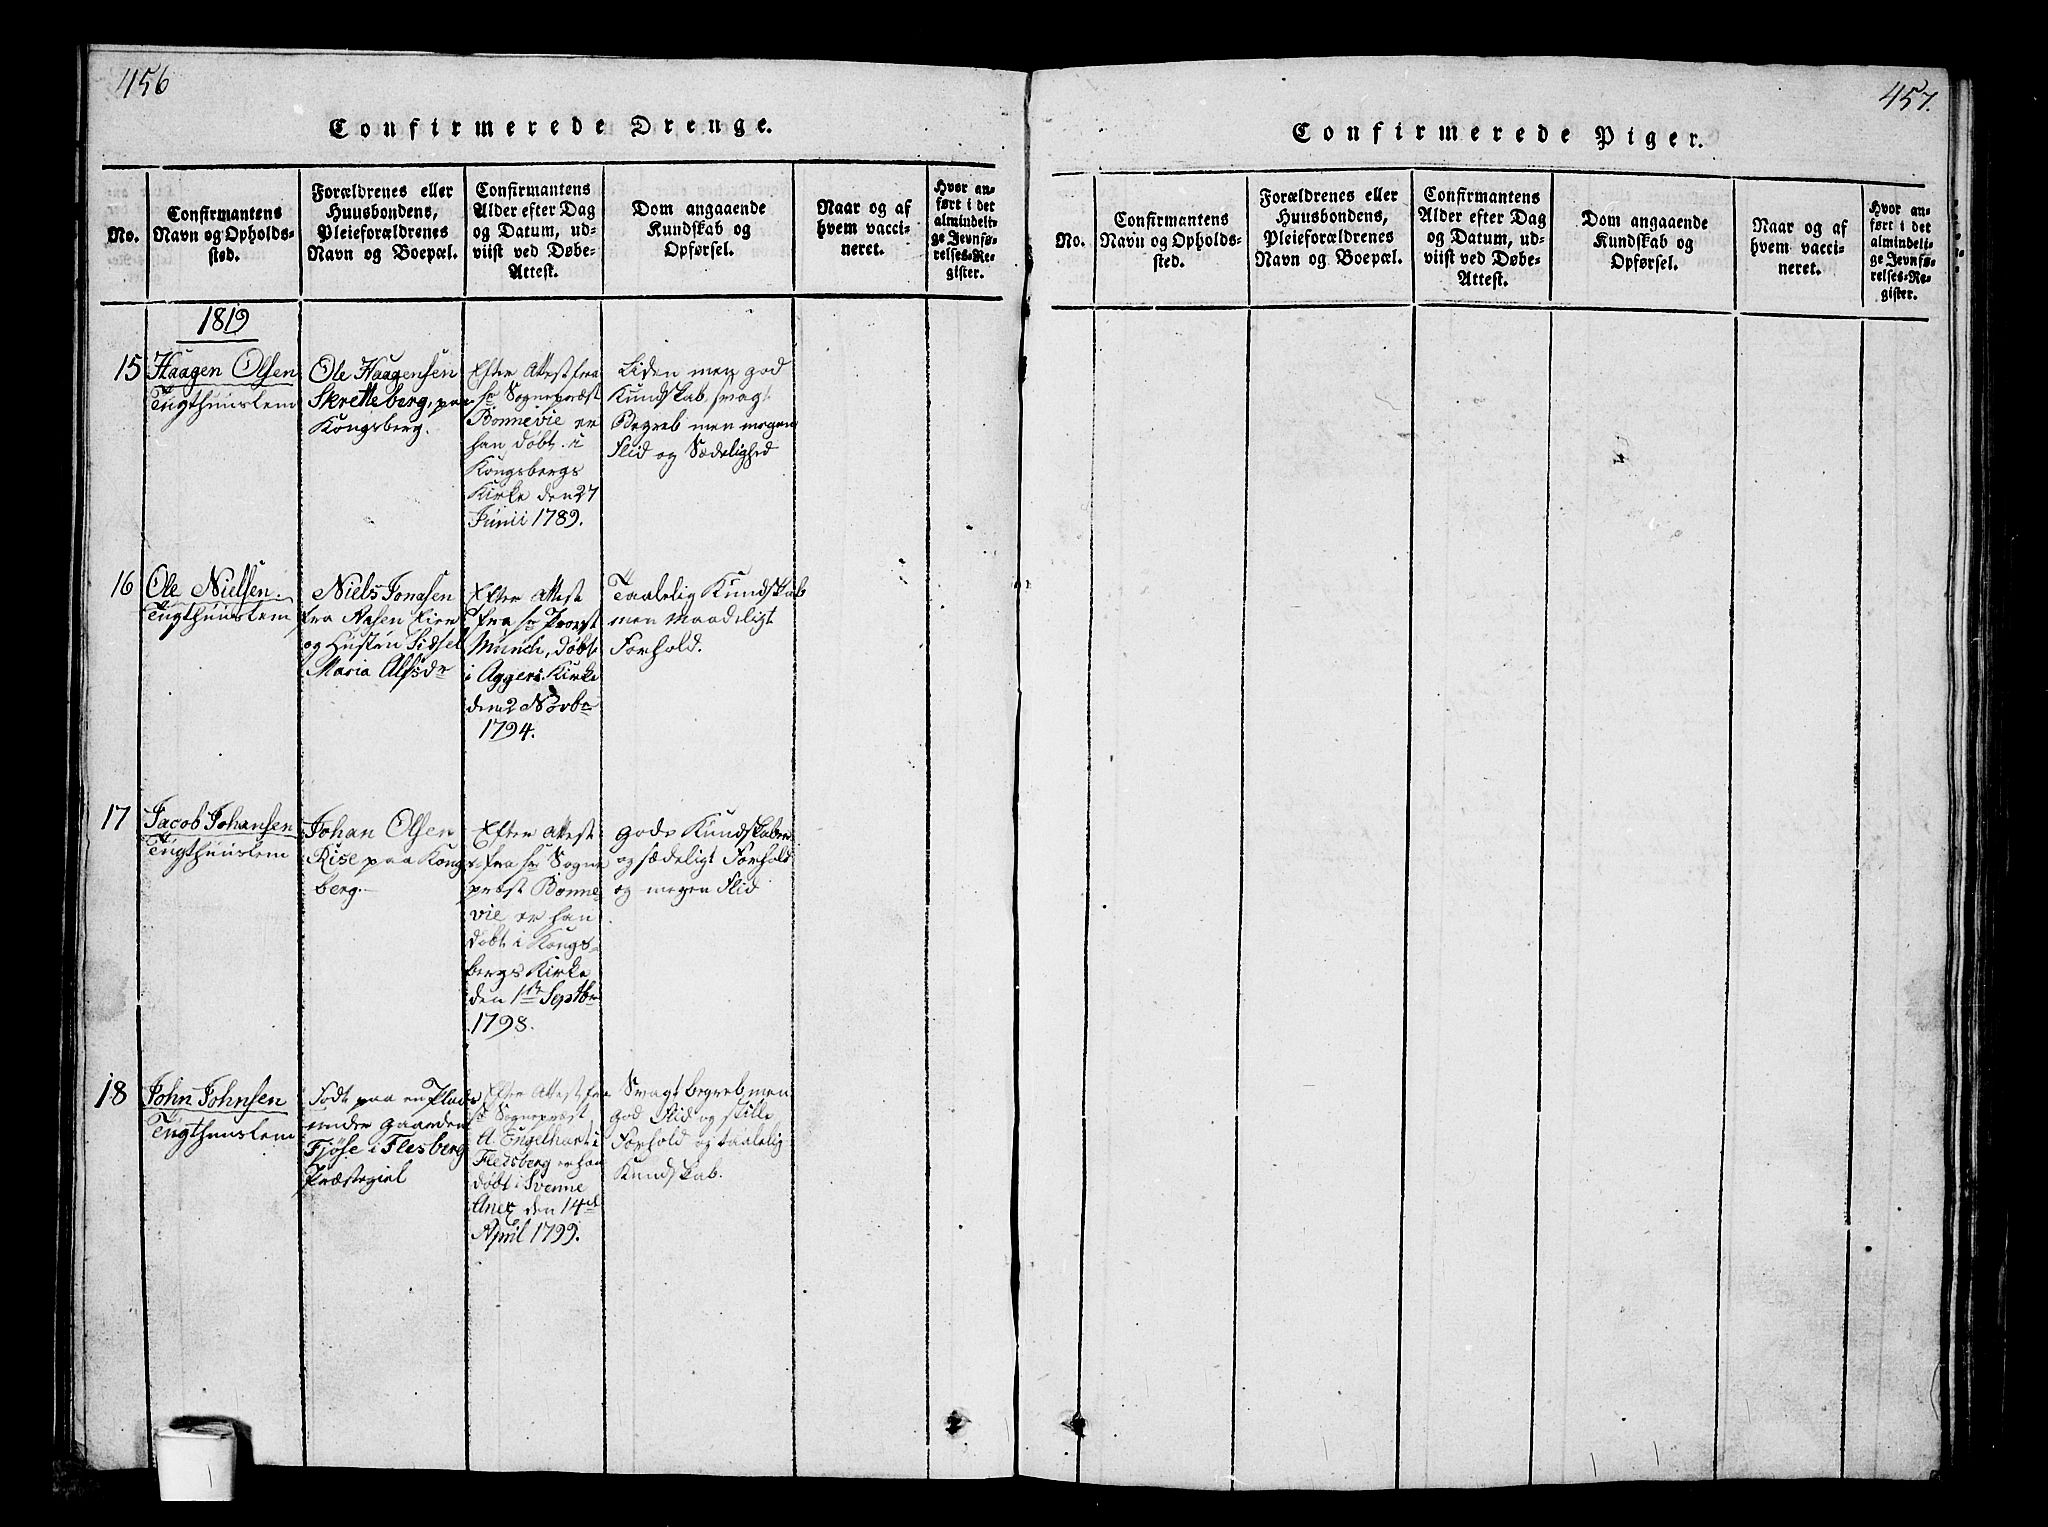 456
Confirmerede Drenge.
No.
Confirmantens
Navn og Opholds-
sted.
Forældrenes eller
Huusbondens,
Pleieforældrenes
Navn og Boepæl.
Confirmantens
Alder efter Dag
og Datum, ud-
viist ved Døbe-
Attest.
Dom angaaende
Kundskab og
Opførsel.
Naar og af
hvem vacci-
neret.
Hvor an-
ført i det
almindeli-
ge Jevnfø-
relses-Re-
gister.
1819
15
Haagen Olsen
Tugthuuslem
Ole Haagensen
Skretteberg, paa
Kongsberg.
Efter Attest fra
Hr Sognepræst
Bonnevie er
han døbt i
Kongsbergs
Kirke den 27
Junii 1789.
Liden men god
Kundskab, svagt
Begreb men megen
Flid og Sædelighed
16
Ole Nielsen.
Tugthuuslem
Niels Jonasen
fra Aasen Eier
og Hustru Sidsel
Maria Alfsdr
Efter Attest
fra Hr Provst
Munch, døbt
i Aggers Kirke
den 2 Novbr
1794.
Taalelig Kundskab
men Maadeligt
Forhold.
17
Jacob Johansen
Tugthuuslem
Johan Olsen
Rise paa Kongs
berg.
Efter Attest
fra Hr Sogne
præst Bonne
vie er han
døbt i Kongs-
bergs Kirke
den 1te Septbr
1798.
Gode Kundskaber
og sædeligt Forhold
og megen Flid
18
John Johnsen
Tugthuuslem
Født paa en Plads
under Gaarden
Fjøse i Flesberg
Præstegiel
Efter Attest fra
Hr Sognepræst
A. Engelhart i
Flesberg er han
døbt i Svenne
Anex den 14de
April 1799.
Svagt begreb, men
god Flid og stille
Forhold og taalelig
Kundskab.
457.
Confirmerede Piger.
No.
Confirmantens
Navn og Opholds-
sted.
Forældrenes eller
Huusbondens,
Pleieforældrenes
Navn og Boepæl.
Confirmantens
Alder efter Dag
og Datum, ud-
viist ved Døbe-
Attest.
Dom angaaende
Kundskab og
Opførsel.
Naar og af
hvem vacci-
neret.
Hvor an-
ført i det
almindeli-
ge Jevnfø-
relses-Re-
gister.